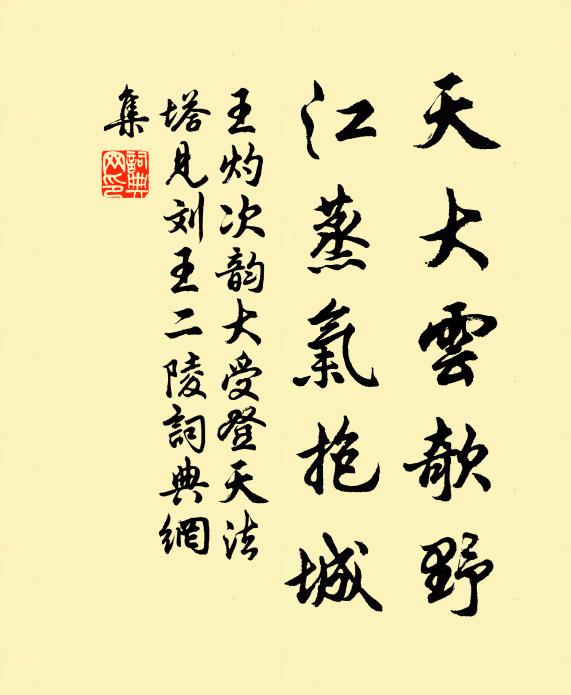 天大雲欹野
江蒸氣抱城
王灼次韵大受登天法
塔見刘王二陵詞典網
集
詞典網印